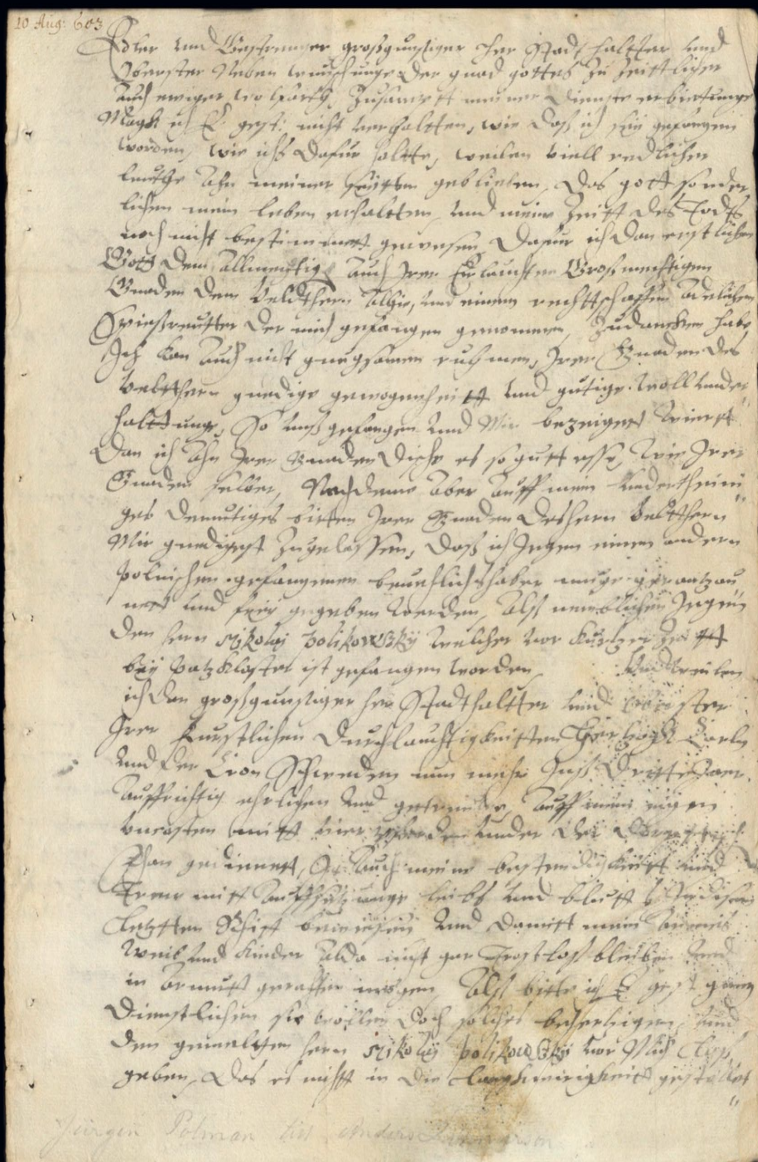 10 Aug: 603
Edler und Gestrenger großgunstiger Her Stadthaltter und
Oberster Neben wunschunge der gnad gottes zu zeittlicher
auch ewiger wolfartt, zusampt meiner dienste erbietunge
Magk ich E. gest: nicht verhaltten, wie das ich hie gefangen
worden, wie ichs dafur haltte, weilen viell redlicher
leuthe ahn meiner seitten geblieben, das gott sonder
lichen mein leben erhaltten, und meine Zeitt des Todts
noch nicht bestimmet gewesen, dafur ich dan erstlichen
Gott dem Allmechtig auch Irer Erlauchten Großmechtigen
Gnaden dem Veldthern alhie, und einem rechttschaffen adelichen
der mich gefangen genommen, zudancken habe
Ich kan auch nicht gnugsamen ruhmen, Irer Gnaden des
Veldthern gnedige gewogenheitt und gutige woll under
halttunge, so uns gefangen und Mir bezeiget wirtt
Dan ich ahn Irer Gnaden Dische es so gutt esse, wie Irer
Gnaden selber, Nachdeme aber auff mein underthenni
ges demutiges bitten Irer Gnaden des hern Veldthern
Mir gnedigst zugelassen, das ich Jegen einen andern
polnischen gefangenen bevehlichshaber muge
und frey gegeben werden, alß nemblichen Jegen
den hern Nikolai Polikowsky welcher vor kurtzer Zeitt
bey Padz Kloster ist gefangen worden, Und weilen
ich dan großgunstiger her Stadthaltter und Oberster
Irer Furstlichen Durchlauchtigkeitten Hertzogk Carln
und der Cron Schweden nun mehr ins dritte Jaer
auffrichtig ehrlichen und getreulich auff mein eigen
uncosten mitt vier pferden under der
gedienet, Auch meine bestendickeit und
Trew mitt auffsetzunge leibs und blutt
letztten bewiesen und damitt mein armes
Weib und Kinder alda nicht gar Trostloß bleiben und
in armutt geratten mugen, Alß bitte ich E gest gantz
dienstlichen sie wollen doch solches befertigen, und
den gemeltten hern Nikolaj Polikowsky vor Mich
geben, Das es nicht in die langkwirigkeit gestellet
Jürgen Polman till Anders